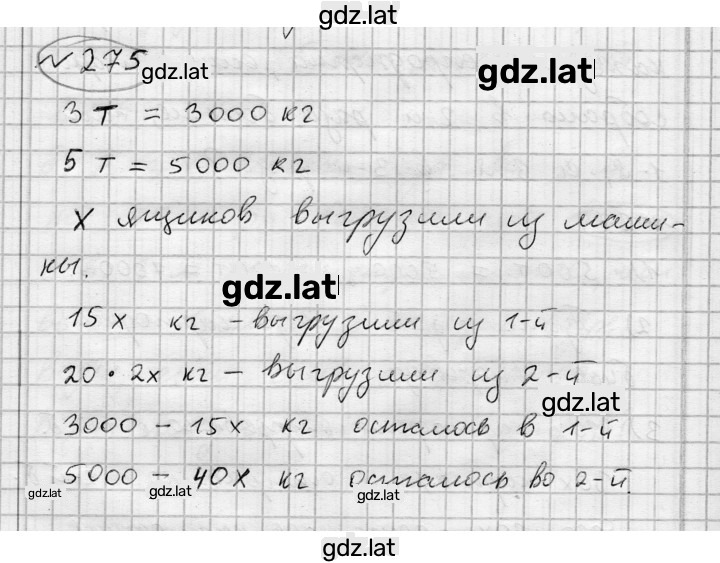 gdz.lat
№ 275
gdz.lat
gdz.lat
3 т = 3000 кг
5 т = 5000 кг
x ящиков выгрузили из маши-
ны.
gdz.lat
15x кг - выгрузили из 1-й
20 · 2x кг - выгрузили из 2-й
gdz.lat
3000 - 15x кг осталось в 1-й
5000 - 40x кг осталось во 2-й.
gdz.lat
gdz.lat
gdz.lat
gdz.lat